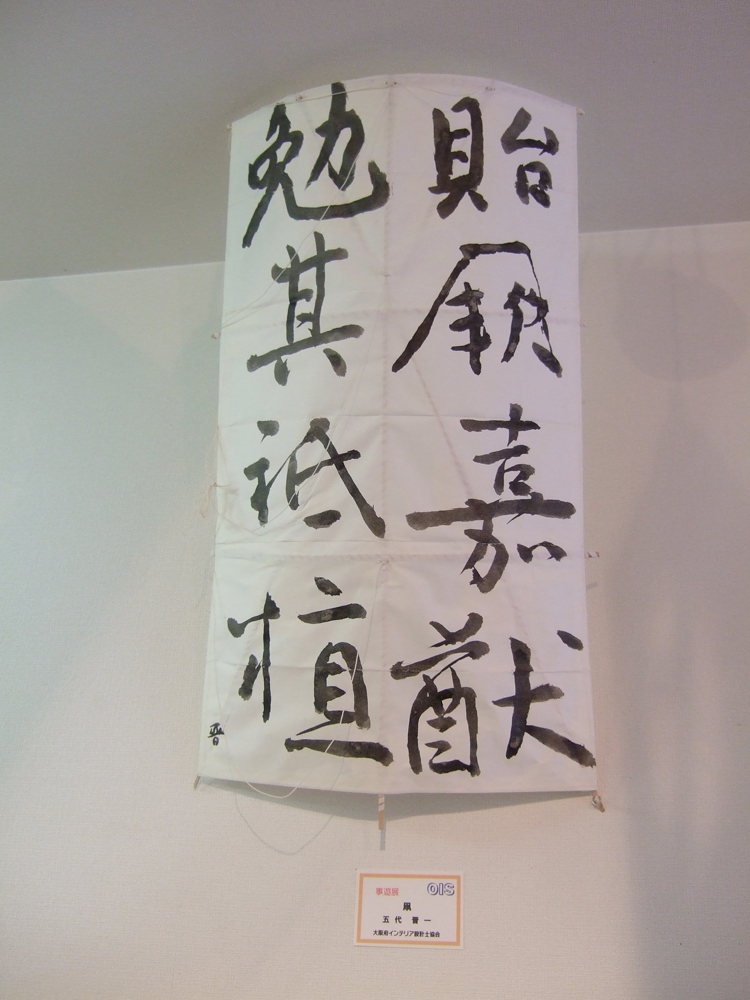 貽厥嘉猷
勉其祗植
晋
事遊展 OIS
凧
五代 晋一
大阪府インテリア設計士協会